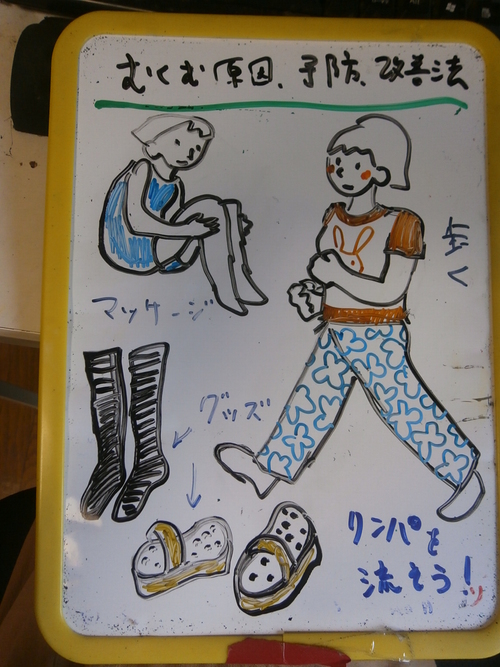 むくむ原因、予防、改善法
歩く
マッサージ
グッズ
リンパを
流そう!